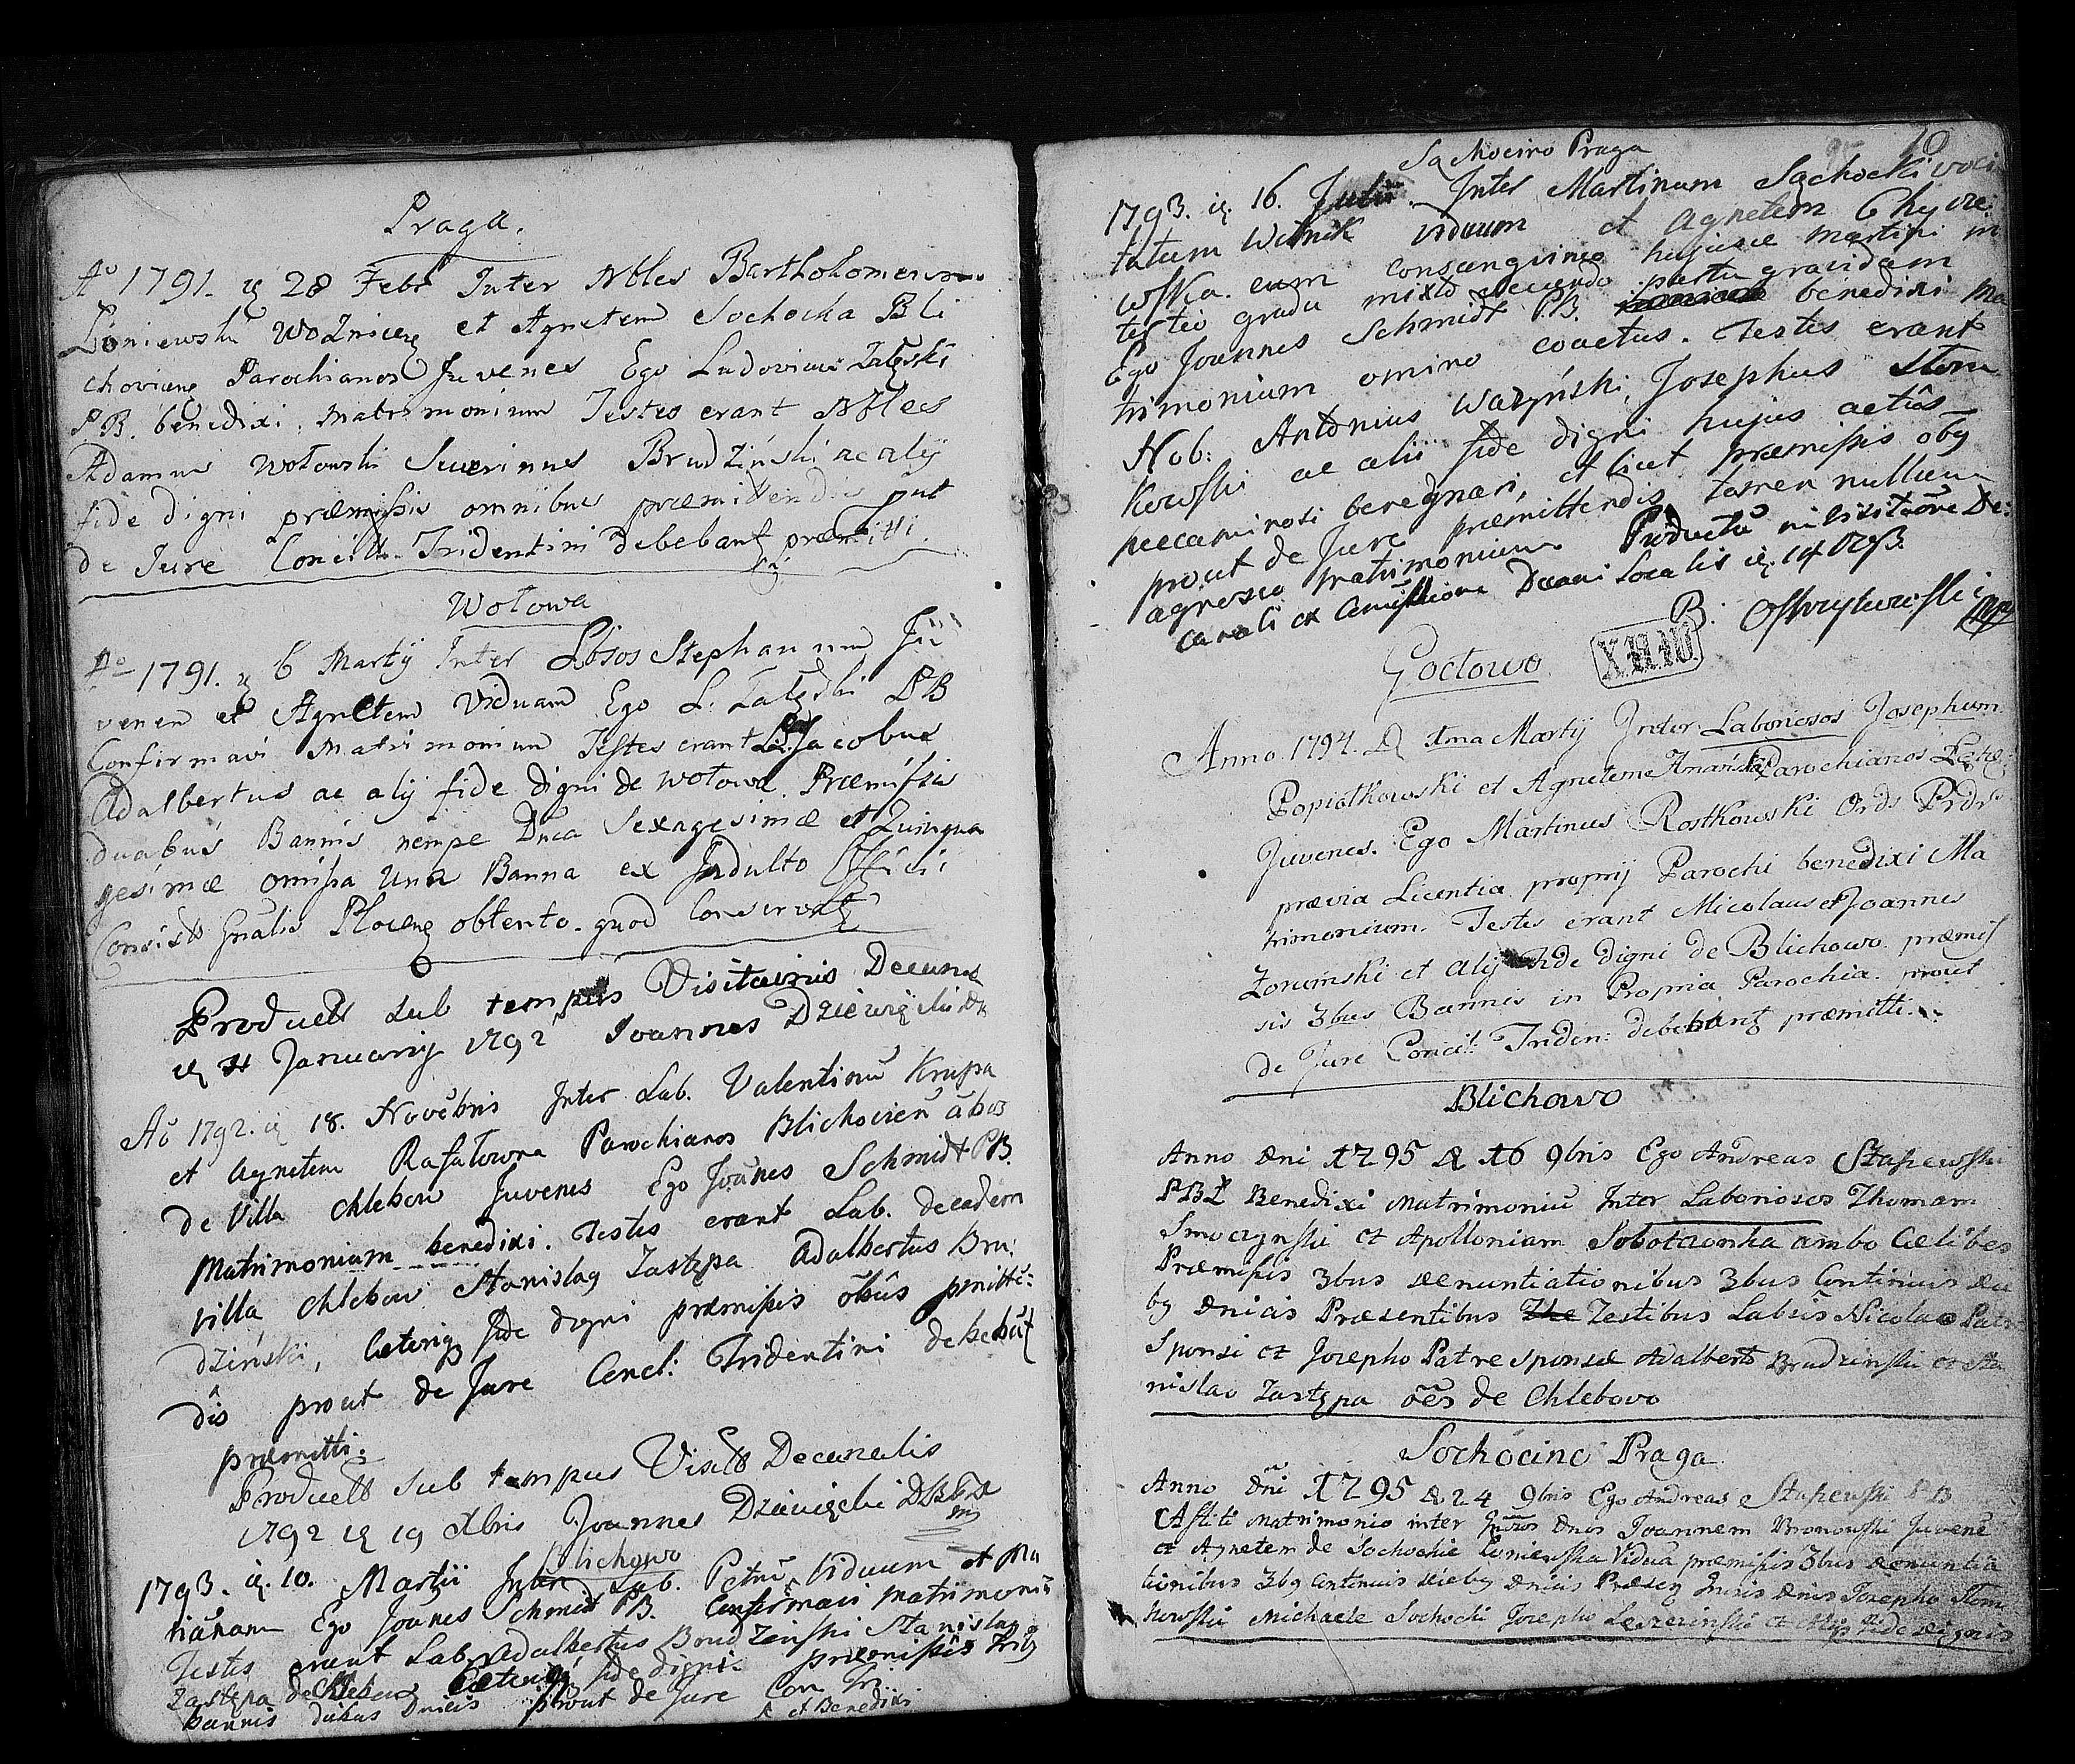 Praga.
Ao 1791. 28 Febr Inter Nbles Bartholomeum
Loniewski Woznicens et Agnetem Sochocka Bli
choviens Parochianos Juvenes Ego Ludovicus Załęski
PB. benedixi. Matrimonium Testes erant Nbles
Adamus Wołowski Suverinus Brudziński ac alij
fide digni præmissis omnibus præmittendis put
de Jure Concilii Tridentini debebant præmitti.
Wołowa
Ao 1791. 6 Martij Inter Lbsos Stephanum Ju
venem et Agnetem Viduam Ego L. Załęski PB
Confirmavi Matrimonium Testes erant Jacobus
Adalbertus ac alij fide digni de Wołowa. Præmissis
duabus Bannis nempe Dnca Sexagesimæ et Quinqua
gesimæ omissa una Banna ex Indulto Officii
Consist Gnalis Plocens obtento. quod Conservatz
Product sub tempus Visitaonis Decana
Januarij 1792 Joannes Dziewięcki
Ao 1792. 18. Novēbris Inter Lab. Valentinū Krupa
et Agnetem Rafałowna Parochianos Blichovien ābos
de Villa Chlebow Juvenes Ego Joānes Schmidt PB.
Matrimonium benedixi. Testes erant Lab. de eadem
villa Chlebow Stanislaq Zastępa Adalbertus Bru:
dziński, Cæteriq fide digni præmissis ōbūs pmittē:
dis prout de Jure Concl: Tridentini debebāt
præmitti.
Product sub tempus Visit Decanalis
1792 19 Xbris Joannes Dziewięcki
Blichowo
1793. 10. Martii Inter Lab. Petrū Viduum et Ma
riānam Ego Joānes Schmidt PB. Confirmavi Matrimoniū
Testes erant Lab. Adalbertus Brudzenski Stanislaq
Zastępa de Chlebow Cæteriq fide digni præmissis Trib
bannis dubus Dnicis prout de Jure Con Tri
et Benedixi
Sachocino Praga
1793. 16. Julii. Inter Martinum Sachocki voci
tatum Witnik viduum et Agnetem Chycze
wska. cum consangvineo hujusce Martini in
tertio gradu mixto secundo partu gravidam
Ego Joannes Schmidt PB. benedixi Ma
trimonium omino coactus. Testes erant
Nob: Antonius Ważyński, Josephus Słom
kowski ac alii fide digni hujus actūs
peccaminosi beregnari, et licet præmissis obq
prout de Jure præmittendis, tamen nullum
agnosco Matrimonium Productū in Visitaōne De:
canali ex Comissione Decani Localis 14 1793.
B: Ostrzykowski mpp
Goctowo
Anno. 1794. D 1ma Martij Inter Laboriosos Josephum
Popiołkowski et Agnetem Parochianos
Juvenes. Ego Martinus Rostkowski Ords Prdr
prævia Licentia proprij Parochi benedixi Ma
trimonium. Testes erant Nicolaus et Joannes
Zoruński et alij Fide digni de Blichowo. præmis
sis 3bus Bannis in Propria Parochia. prout
de Jure Concil: Triden: debebant præmitti.
Blichowo
Anno Dni 1795 D 16 9bris Ego Andreas Stasewski
PBL Benedixi Matrimoniū Inter Laboriosos Thomam
Smoczynski et Apolloniam Sobotzonka ambo Cælibes
Præmissis 3bus Denuntiationibus 3bus Continuis die
bq Dnicis Præsentibus Testibus Labsis Nicolao Patre
Sponsi et Josepho Patre Sponsæ Adalberto Brudzinski et Sta
nislao Zastępa oēs de Chlebowo
Sochocino Praga
Anno Dni 1795 D 24 9bris Ego Andreas Stasewski PB
Astiti Matrimonio inter Gnosos Dnos Joannem Bronowski Juvenē
et Agnetem de Sochockie Loniewska Viduā præmissis 3bus Denuntia
tionibus 3bq Continuis Diebq Dnicis Præseq Gnosis Dnis Josepho Słom
kowski Michaele Sochocki Josepho Leszczinski et Alijs Fide dignis